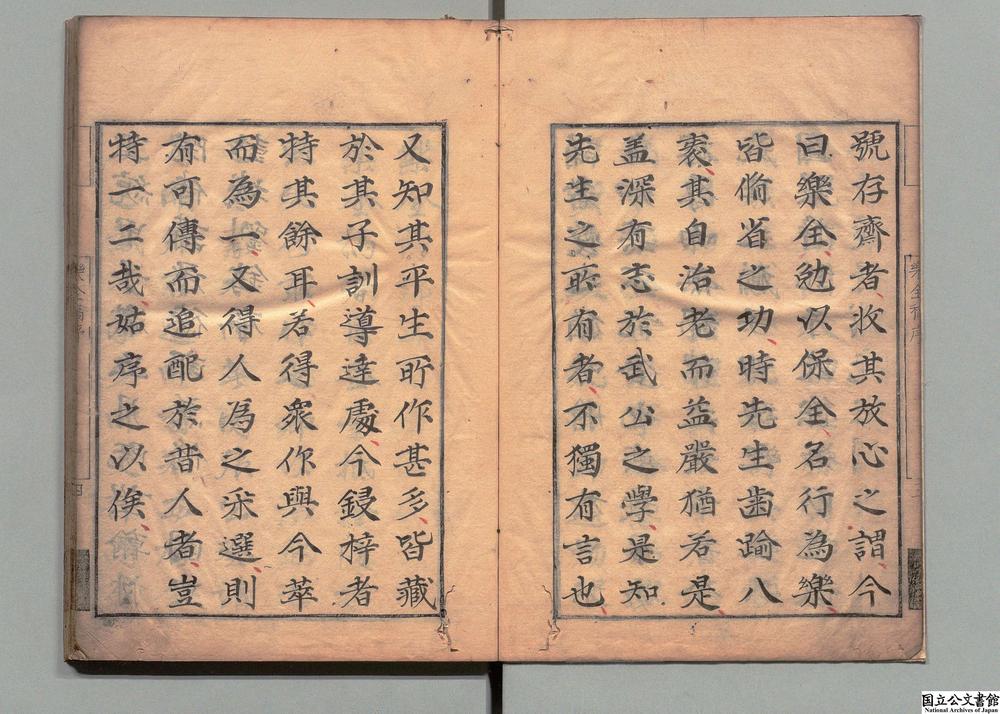 號存齋者收其放心之謂今
曰樂全勉以保全名行為樂
皆脩省之功時先生歯踰八
袠其自治老而益嚴猶若是
盖深有志於武公之學是知
先生之所有者不獨有言也
又知其平生所作甚多皆藏
於其子訓導達處今鋟梓者
特其餘耳若得衆作與今萃
而為一又得人為之采選則
有可傳而追配於昔人者豈
特一二哉姑序之以俟
国立公文書館
National Archives of Japan